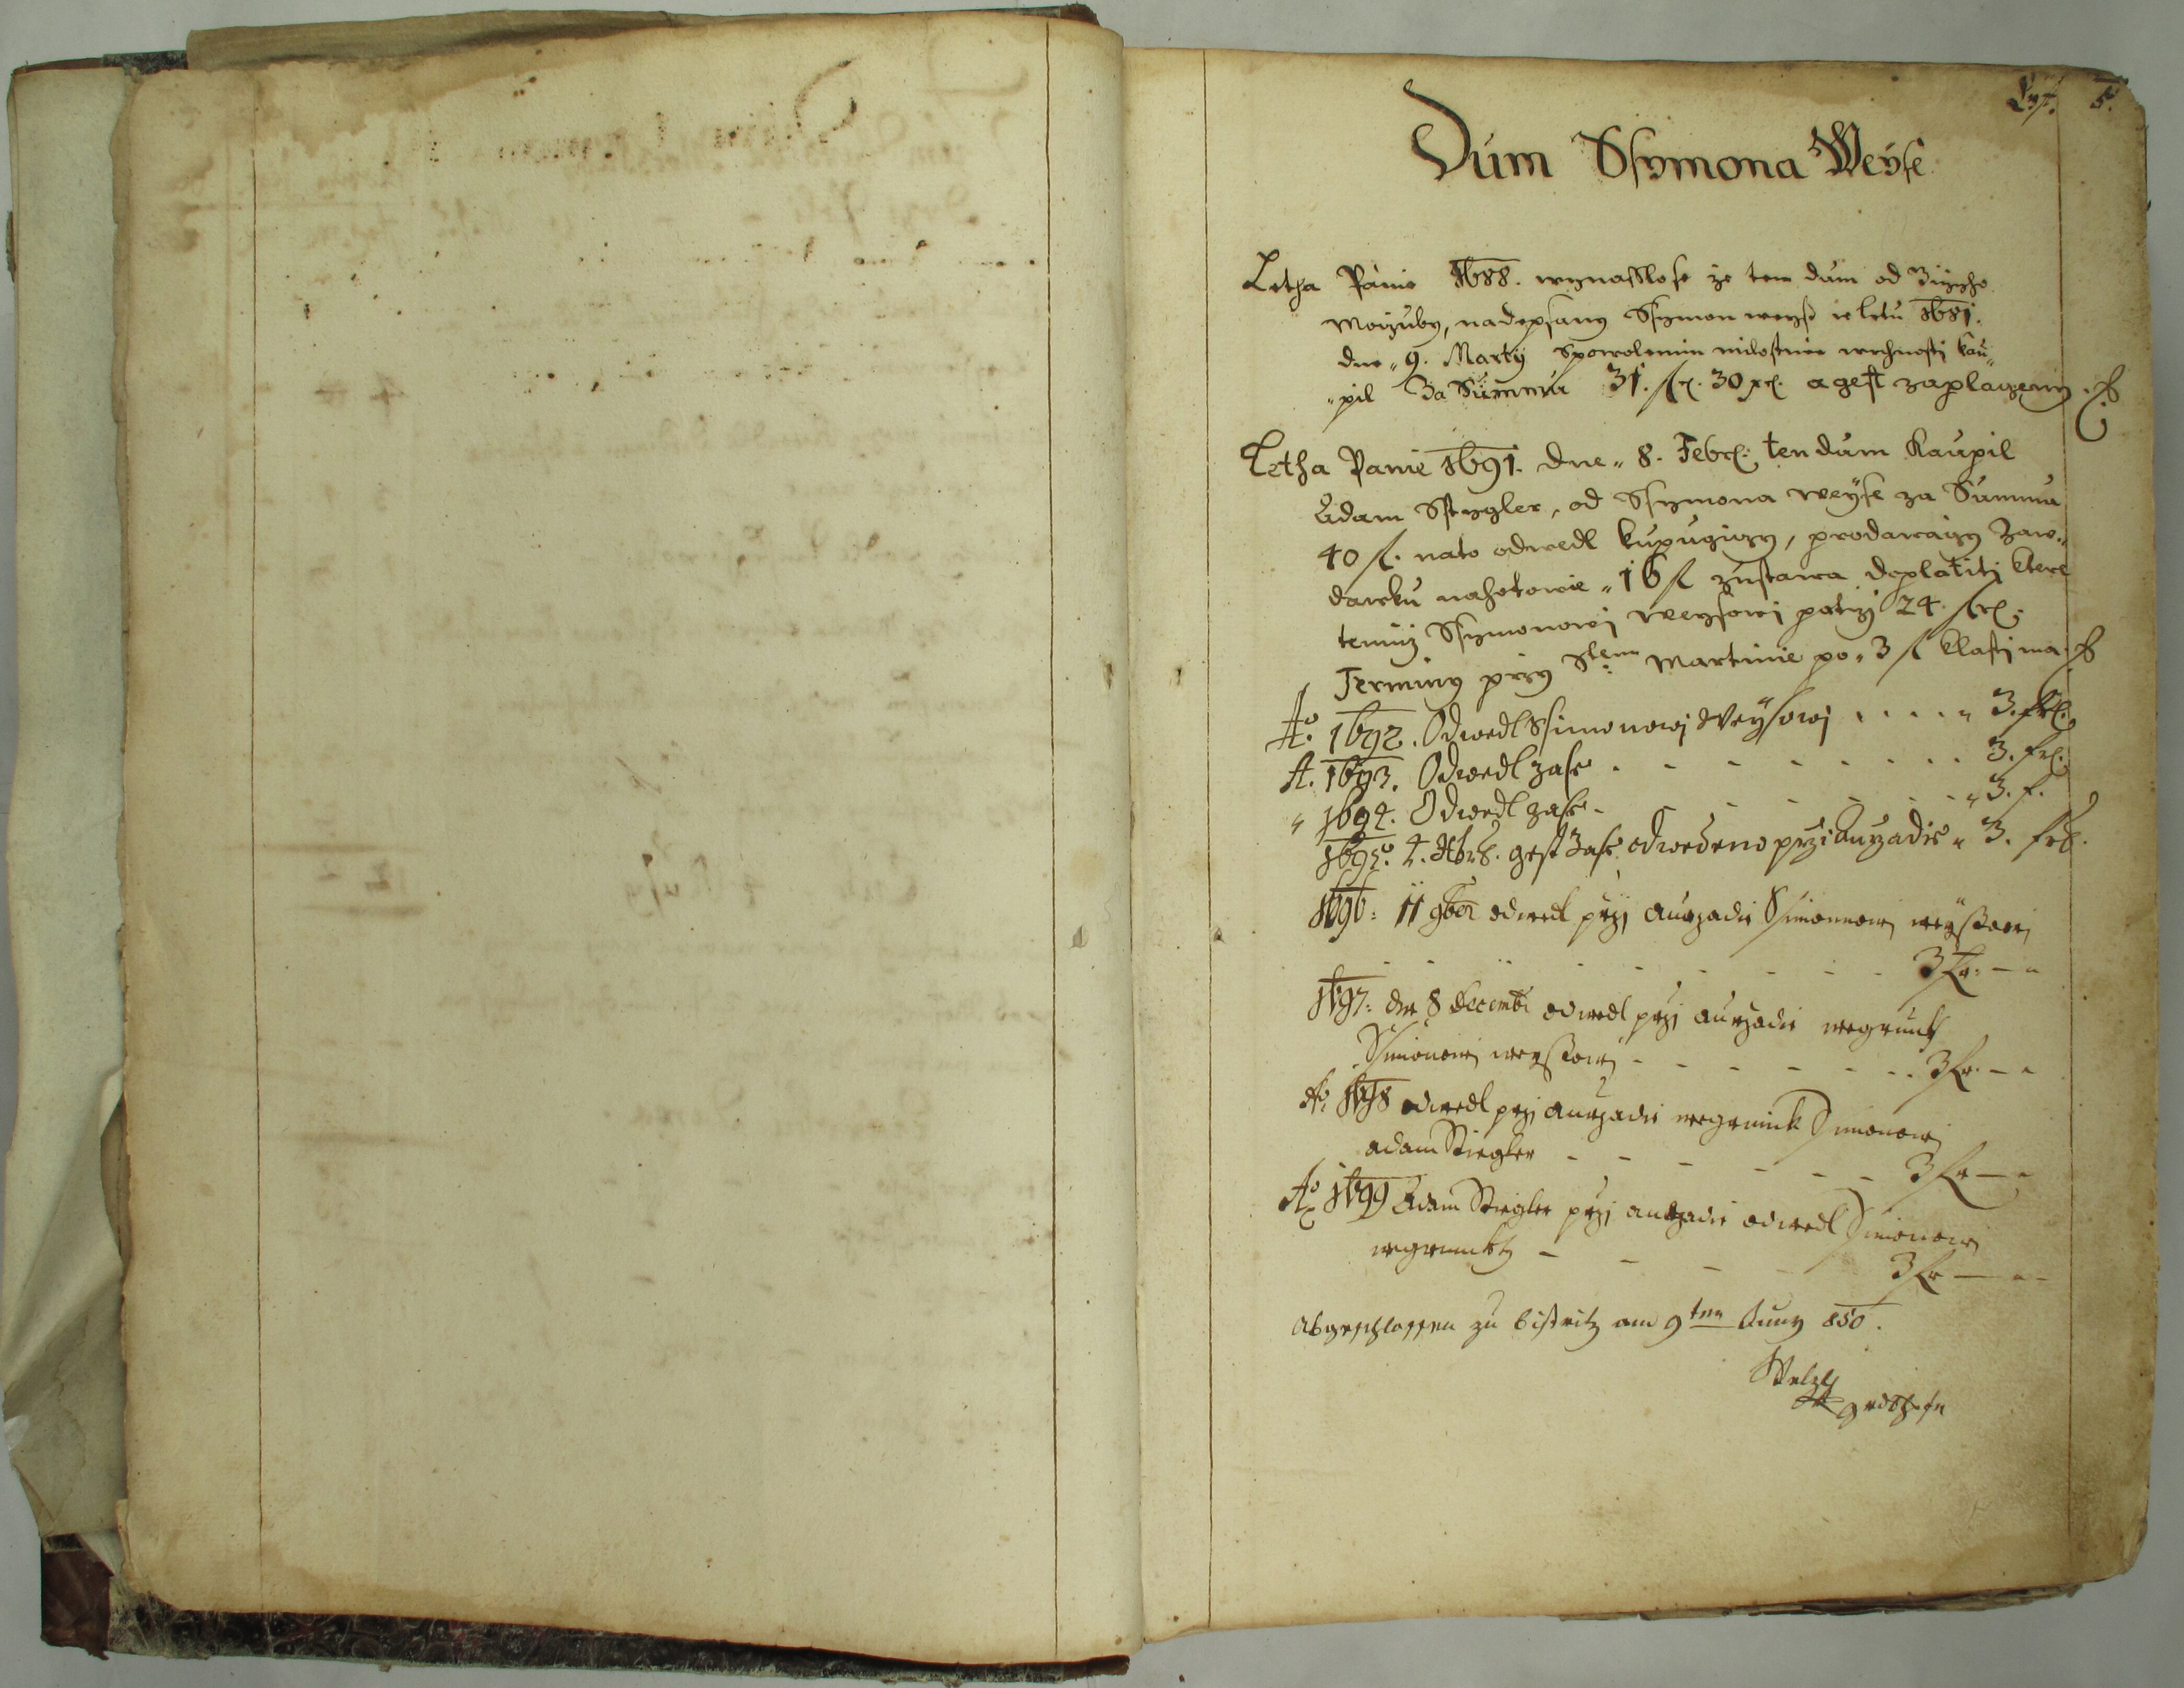 Lyst. 5.
Dum Ssymona Weyse
Letha Panie 1688. wynasslose ze ten dum od
nadepsany Ssymon weyß w letu 1681.
dne 9. Marty Spowolenim milostiwe wrchnosti kau„
„pil Za Summu 31. fl. 30 xr. a gest zaplaczeny.
Letha Panie 1691. dne 8. Febr: ten dum Kaupil
Adam Sstygler, od Ssymona weyse za Summu
40 fl. nato odwedl kupugiczy, prodawaiczy Zaw„
dawku nahotowie „ 16 fl zustawa doplatiti ktere
temuz Ssymonowj weysowj patrzj 24. fl.
Terminy przy Stem Martinie po „ 3 fl klasti ma
Ao. 1692. Odwedl Ssimonowj Weysowj . . . . „ 3. fl.
A. 1693. Odwedl zase . - - - - - - . . . 3. fl.
„ 1694. Odwedl zase - - - - - - . - „ 3. f.
1695. 4. Xbr. gest Zase odwedeno przi Aurzadie „ 3. fl.
1696: 11 9ber odwedl przj aurzadie Simonowj weyssowj
- - - - - - - - - 3 fl. — „
1697: dne 8 Decemb odwedl przj aurzadie wegrunk
Simonowj weyssowj - - - - - - . . 3 fl. — „
Ao. 1698 odwedl przj aurzadie wegrunk Simonowj
adam Stiegler - - - - - - 3 fl — „
Ao 1699 Adam Stiegler przj aurzadie odwedl Simonowj
wegrunkj - - - - 3 fl — „ -
Abgeschlossen zu Bistritz am 9ten Juny 850.
Welzl